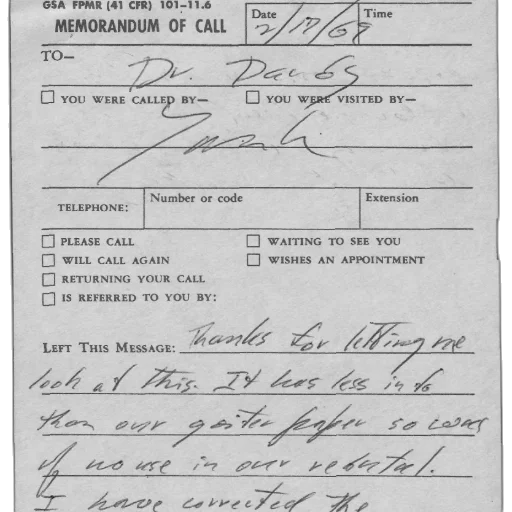 GSA FPMR (41 CFR) 101-11.6
MEMORANDUM OF CALL
Date
Time
2/17/69
TO—
Dr.
YOU WERE CALLED BY—
YOU WERE VISITED BY—
TELEPHONE:
Number or code
Extension
PLEASE CALL
WAITING TO SEE YOU
WILL CALL AGAIN
WISHES AN APPOINTMENT
RETURNING YOUR CALL
IS REFERRED TO YOU BY:
LEFT THIS MESSAGE: Thanks for letting me
look at this. It has less info
than our goiter paper so was
of no use in our rebuttal.
I have corrected the